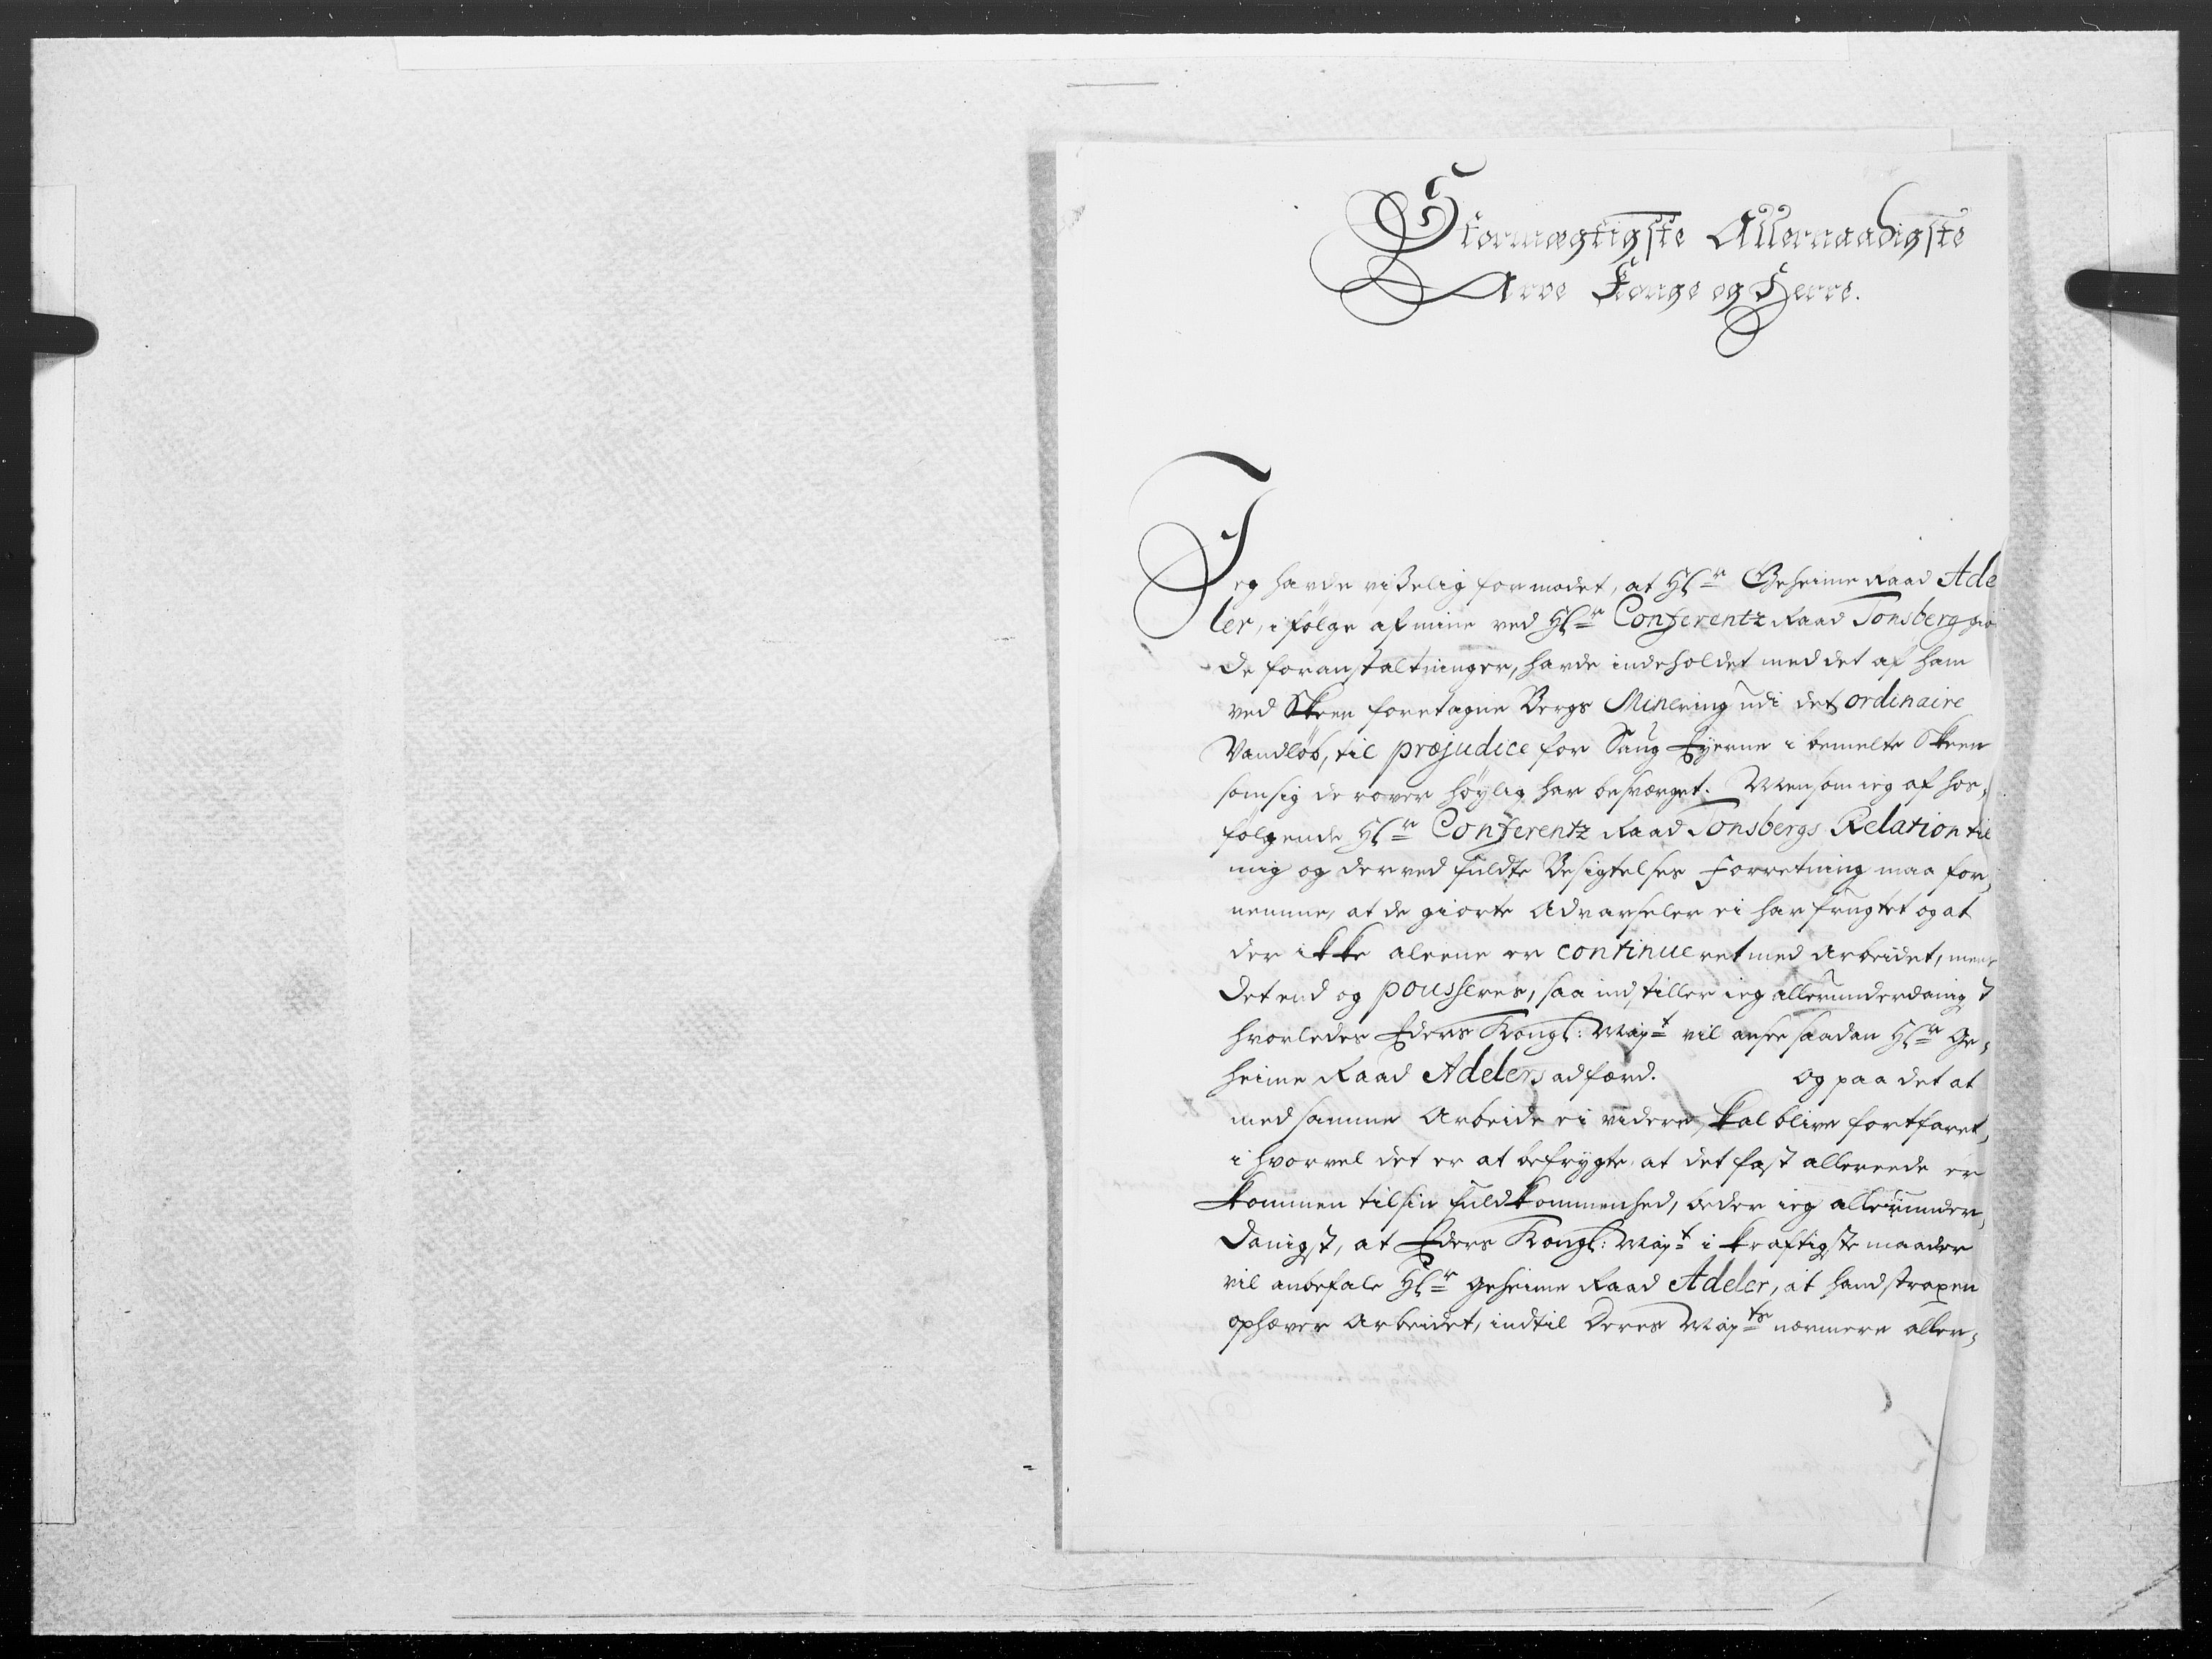 Stormægtigste Allernaadigste
Arve Konge og Herre.
Jeg havde visselig formodet, at Hr Geheime Raad Ade
ler, i følge af mine ved Hr Conferentz Raad Tonsberg gio
de foranstaltninger, havde indeholdet med det af ham
ved Skeen foretagne Bergs Minering udi det ordinaire
Vandløb, til præjudice for Saug Eyerne i bemelte Skeen
som sig derover høylig har besværget. Men som ieg af hos,
følgende Hr Conferentz Raad Tonsbergs Relation til
mig og derved fuldte Besigtelses Forretning maa for,
nemme, at de giorte Advarseler ei har frugtet og at
der ikke aleene er continueret med Arbeidet, men
det end og pousseres, saa indstiller ieg allerunderdanigst
hvorledes Eders Kongl: Mayt vil ansee saadan Hr Ge,
heime Raad Adelers adfærd. Og paa det at
med samme Arbeide ei videre skal blive fortfaret,
i hvorvel det er at befrygte at det fast allereede er
kommen til sin fuldkommenhed, beder ieg allerunder,
danigst, at Eders Kongl: Mayt i kraftigste maader
vil anbefale Hr Geheime Raad Adeler, at hand straxen
ophæver Arbeidet, indtil Deres Mayts nærmere aller,